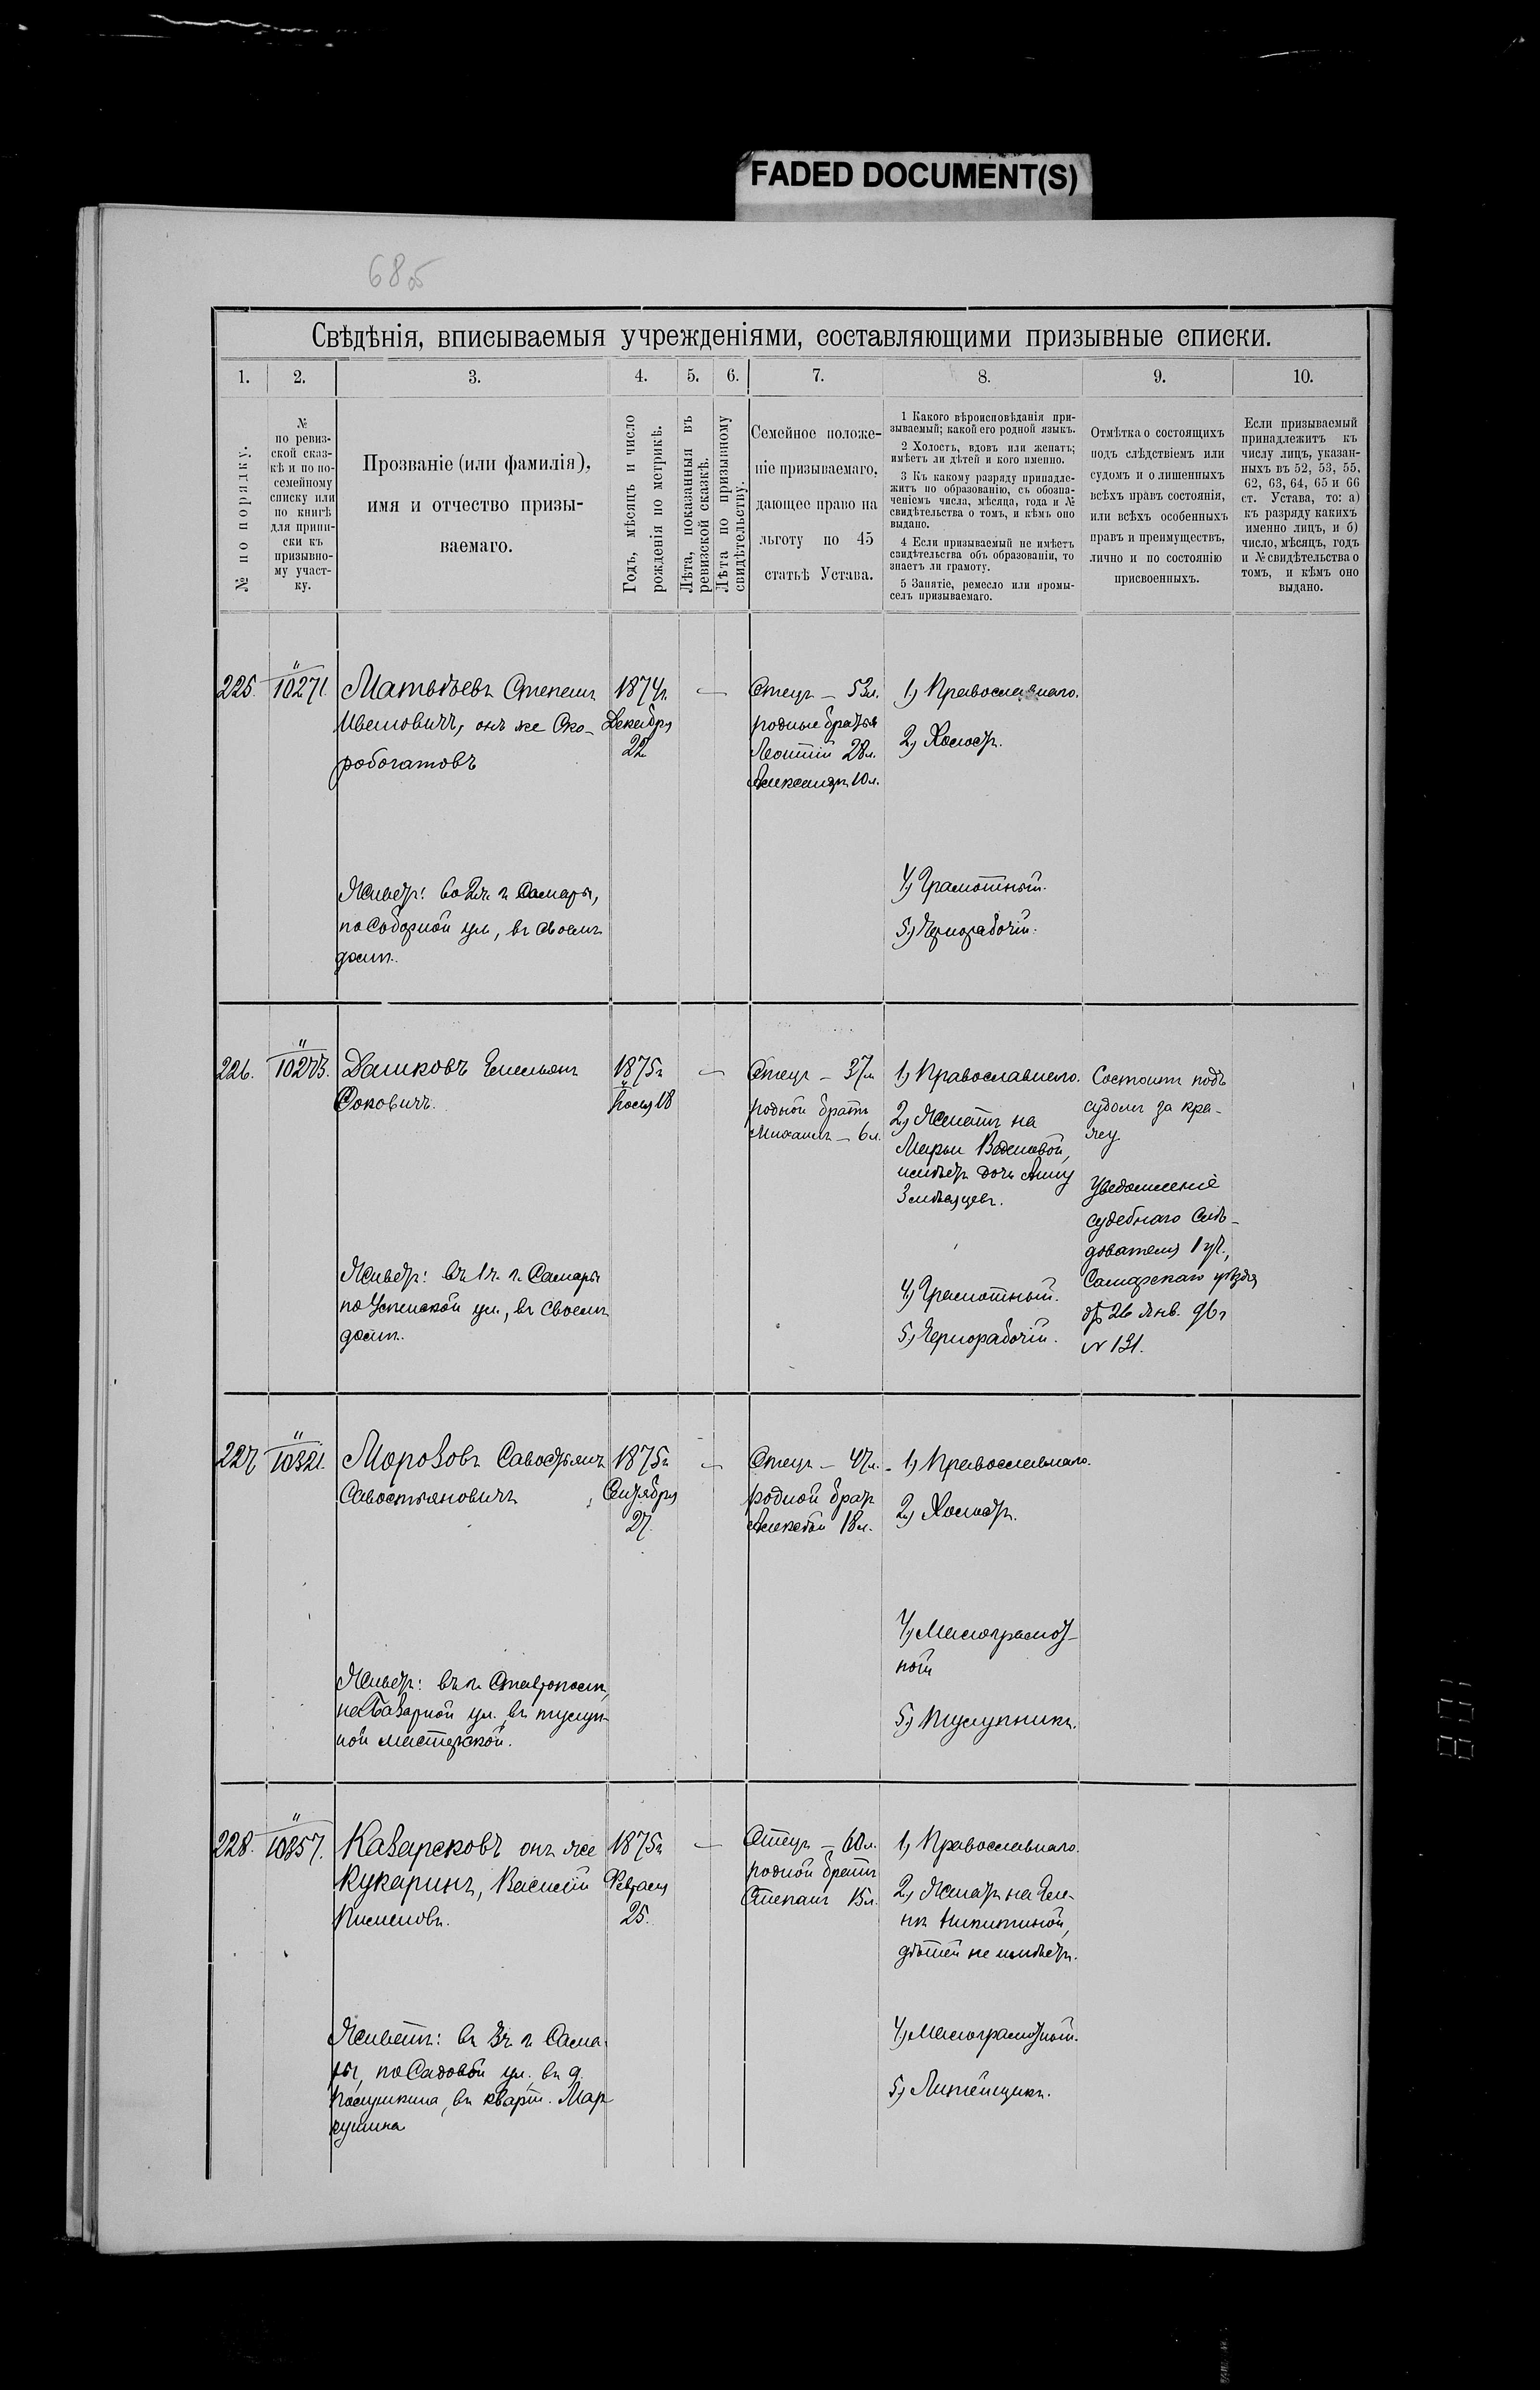 FADED DOCUMENT(S)
685
Свѣдѣнія, вписываемыя учрежденіями, составляющими призывные списки.
1. 2. 3. 4. 5. 6. 7. 8. 9. 10.
№ по порядку.
№
по ревиз-
ской сказ-
кѣ и по по-
семейному
списку или
по книгѣ
для припи-
ски къ
призывно-
му участ-
ку.
Прозваніе (или фамилія),
имя и отчество призы-
ваемаго.
Годъ, мѣсяцъ и число
рожденія по метрикѣ.
Лѣта, показанныя въ
ревизской сказкѣ.
Лѣта по призывному
свидѣтельству.
Семейное положе-
ніе призываемаго,
дающее право на
льготу по 45
статьѣ Устава.
1 Какого вѣроисповѣданія при-
зываемый; какой его родной языкъ.
2 Холостъ, вдовъ или женатъ;
имѣетъ ли дѣтей и кого именно.
3 Къ какому разряду принадле-
житъ по образованію, съ обозна-
ченіемъ числа, мѣсяца, года и №
свидѣтельства о томъ, и кѣмъ оно
выдано.
4 Если призываемый не имѣетъ
свидѣтельства объ образованіи, то
знаетъ ли грамоту.
5 Занятіе, ремесло или промы-
селъ призываемаго.
Отмѣтка о состоящихъ
подъ слѣдствіемъ или
судомъ и о лишенныхъ
всѣхъ правъ состоянія,
или всѣхъ особенныхъ
правъ и преимуществъ,
лично и по состоянію
присвоенныхъ.
Если призываемый
принадлежитъ къ
числу лицъ, указан-
ныхъ въ 52, 53, 55,
62, 63, 64, 65 и 66
ст. Устава, то: а)
къ разряду какихъ
именно лицъ, и б)
число, мѣсяцъ, годъ
и № свидѣтельства о
томъ, и кѣмъ оно
выдано.
225. " 10271.
Матвѣевъ Степанъ
Ивановичъ, онъ же Ско-
робогатовъ
1874г.
Декабря
22
—
Отецъ — 53л.
родные братья
Леонтій 28л.
Александръ 10л.
1) Православнаго.
2) Холостъ.
Живетъ: во 2ч. г. Самары,
по Соборной ул., въ своемъ
домѣ.
4) Грамотный.
5) Чернорабочій.
226. " 10273.
Дашковъ Емельянъ
Фоковичъ.
1875г.
Іюля 18
—
Отецъ — 37л.
родной братъ
Михаилъ — 6л.
1) Православнаго.
2) Женатъ на
Марьи
имѣетъ дочь Анну
3 мѣсяцевъ.
Состоитъ подъ
судомъ за кра-
жу.
Уведомленіе
судебнаго Слѣ-
дователя 1 уч.,
Самарскаго уѣзда
отъ 26 Янв. 96г
№ 131.
Живетъ: въ 1ч. г. Самары
по Успенской ул., въ своемъ
домѣ.
4) Грамотный.
5) Чернорабочій.
227. " 10321.
Морозовъ Савостьянъ
Савостьяновичъ
1875г.
Сентября
27.
—
Отецъ — 47л.
родной братъ
Алексѣй 18л.
1) Православнаго.
2) Холостъ.
Живетъ: въ г. Ставрополѣ,
на Базарной ул. въ тулуп-
ной мастерской.
4) Малограмот-
ный
5) Тулупникъ.
228. " 10357.
Казарсковъ онъ же
Кукаринъ, Василій
Пименовъ.
1875г.
Февраля
25.
—
Отецъ — 60л.
родной братъ
Степанъ 15л.
1) Православнаго.
2) Женатъ на Еле-
нѣ Никитиной,
дѣтей не имѣетъ.
Живетъ: въ 3ч. г. Сама-
ры, по Садовой ул. въ д.
въ кварт. Мар
4) Малограмотный.
5) Литейщикъ.
108